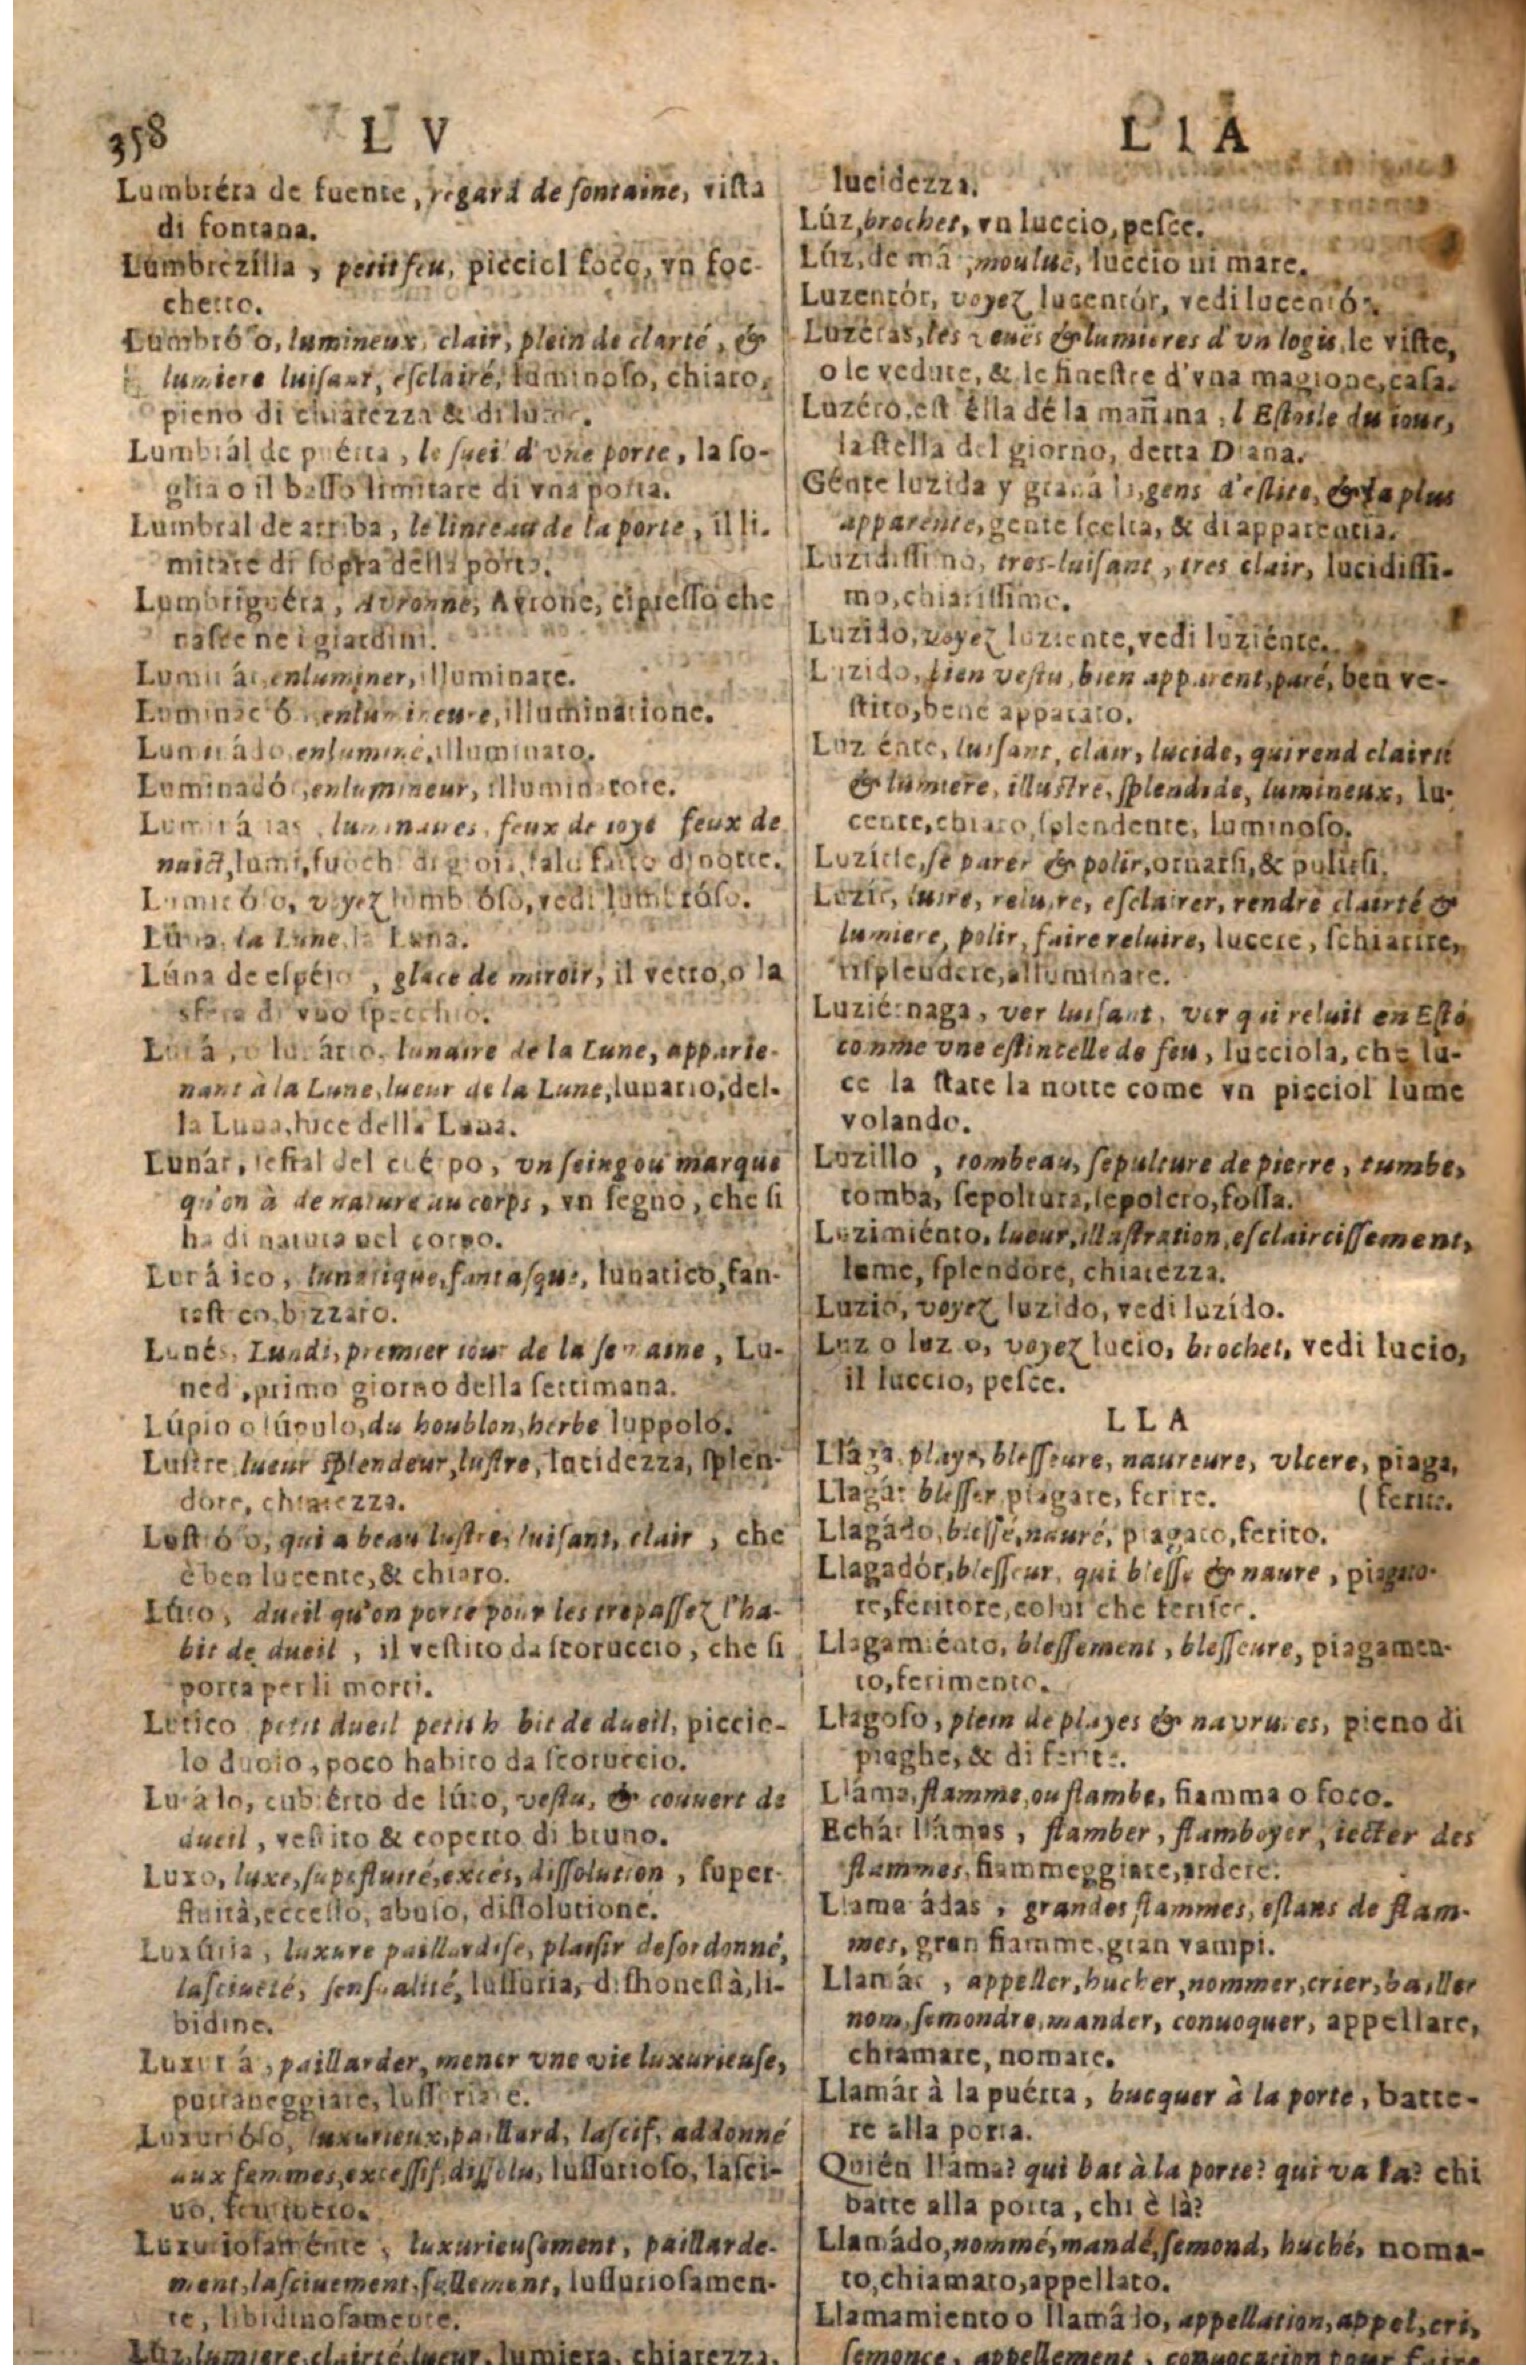 358 L V
Lumbréra de fuente, regard de fontaine, vista
di fontana.
Lumbrezilla, petit feu, picciol foco, vn foc-
chetto.
lumineux, clair, plein de clarté, &
lumiere luisant, esclairé, luminoso, chiaro,
pieno di chiarezza & di
Lumbrál de puérta, le sueil d'vne porte, la so-
glia o il basso limitare di vna porta.
Lumbral de arriba, le linteau de la porte, il li-
mitare di sopra della porta.
Lombriguéra, Avronne, Avrone, cipresso che
nasce ne i giardini.
enluminer, illuminare.
enlumineure, illuminatione.
enluminé, illuminato.
enlumineur, illuminatore.
luminaires, feux de ioye feux de
nuict, lumi, fuochi di gioia, falo fatto di notte.
voyez lumbróso, vedi lumbróso.
Lúna, la Lune, la Luna.
Lúna de espéjo, glace de miroir, il vetro, o la
sfera di vno specchio.
lunaire de la Lune, apparte-
nant à la Lune, lueur de la Lune, lunario, del-
la Luna, luce della Luna.
Lunár, señal del cuérpo, vn seing ou marque
qu'on à de nature au corps, vn segno, che si
ha di natura nel corpo.
lunatique, fantasque, lunatico, fan-
tastico, bizzaro.
Lunés, Lundi, premier iour de la semaine, Lu-
nedi, primo giorno della settimana.
Lúpio o lúpulo, du houblon, herbe luppolo.
Lustre, lueur splendeur, lustre, lucidezza, splen-
dore, chiarezza.
qui a beau lustre, luisant, clair, che
è ben lucente, & chiaro.
Lúto, dueil qu'on porte pour les trepassez l'ha-
bit de dueil, il vestito da scoruccio, che si
porta per li morti.
Lutico petit dueil petit habit de dueil, piccio-
lo duolo, poco habito da scoruccio.
cubiérto de lúto, vestu, & couuert de
dueil, vestito & coperto di bruno.
Luxo, luxe, superfluité, excés, dissolution, super-
fluità, eccesso, abuso, dissolutione.
Luxúria, luxure paillardise, plaisir desordonné,
lasciueté, sensualité, lussuria, dishonestà, li-
bidine.
paillarder, mener vne vie luxurieuse,
puttaneggiare, lussuriare.
Luxurióso, luxurieux, paillard, lascif, addonné
aux femmes, excessif, dissolu, lussurioso, lasci-
uo,
Luxuriosaménte, luxurieusement, paillarde-
ment, lasciuement, sallement, lussuriosamen-
te, libidinosamente.
Lúz, lumiere, clairté, lueur, lumiera, chiarezza,
L l A
lucidezza.
Lúz, brochet, vn luccio, pesce.
Lúz, de mâ, mouluë, luccio di mare.
Luzentór, voyez lucentór, vedi lucentór.
Luzéras, les veuës & lumieres d'vn logis, le viste,
o le vedute, & le finestre d'vna magione, casa.
Luzéro, estrélla dé la mañana, l'Estoile du iour,
la stella del giorno, detta Diana.
Génte luzida y granáda, gens d'eslite, & la plus
apparente, gente scelta, & di apparentia.
Luzidissimo, tres-luisant, tres clair, lucidissi-
mo, chiarissimo.
Luzido, voyez luziente, vedi luziénte.
Luzido, bien vestu, bien apparent, paré, ben ve-
stito, bene apparato.
Luziénte, luisant, clair, lucide, qui rend clairté
& lumiere, illustre, splendide, lumineux, lu-
cente, chiaro, splendente, luminoso.
Luzirse, se parer & polir, ornarsi, & pulirsi.
Luzir, luire, reluire, esclairer, rendre clairté &
lumiere, polir, faire reluire, lucere, schiarire,
risplendere, alluminare.
Luziérnaga, ver luisant, ver qui reluit en Esté
comme vne estincelle de feu, lucciola, che lu-
ce la state la notte come vn picciol lume
volando.
Luzillo, tombeau, sepulture de pierre, tumbe,
tomba, sepoltura, sepolcro, fossa.
Luzimiénto, lueur, illustration, esclaircissement,
lume, splendore, chiarezza.
Luzio, voyez luzido, vedi luzído.
Luz o luzio, voyez lucio, brochet, vedi lucio,
il luccio, pesce.
L L A
Llága, playe, blesseure, naureure, vlcere, piaga,
Llagár blesser, piagare, ferire. (ferite.
Llagádo, blessé, nauré, piagato, ferito.
Llagadór, blesseur, qui blesse & naure, piagato-
re, feritore, colui che ferisce.
Llagamiénto, blessement, blesseure, piagamen-
to, ferimento.
Llagoso, plein de playes & navrures, pieno di
piaghe, & di ferite.
Lláma, flamme, ou flambe, fiamma o foco.
Echár llámas, flamber, flamboyer, iecter des
flammes, fiammeggiare, ardere.
Llamarádas, grandes flammes, eslans de flam-
mes, gran fiamme, gran vampi.
Llamár, appeller, hucher, nommer, crier, bailler
nom, semondre, mander, conuoquer, appellare,
chiamare, nomare.
Llamár à la puérta, bucquer à la porte, batte-
re alla porta.
Quién llama? qui bat à la porte? qui va la? chi
batte alla porta, chi è là?
Llamádo, nommé, mandé, semond, huché, noma-
to, chiamato, appellato.
Llamamiento o llamádo, appellation, appel, cri,
semonce, appellement, conuocation pour faire